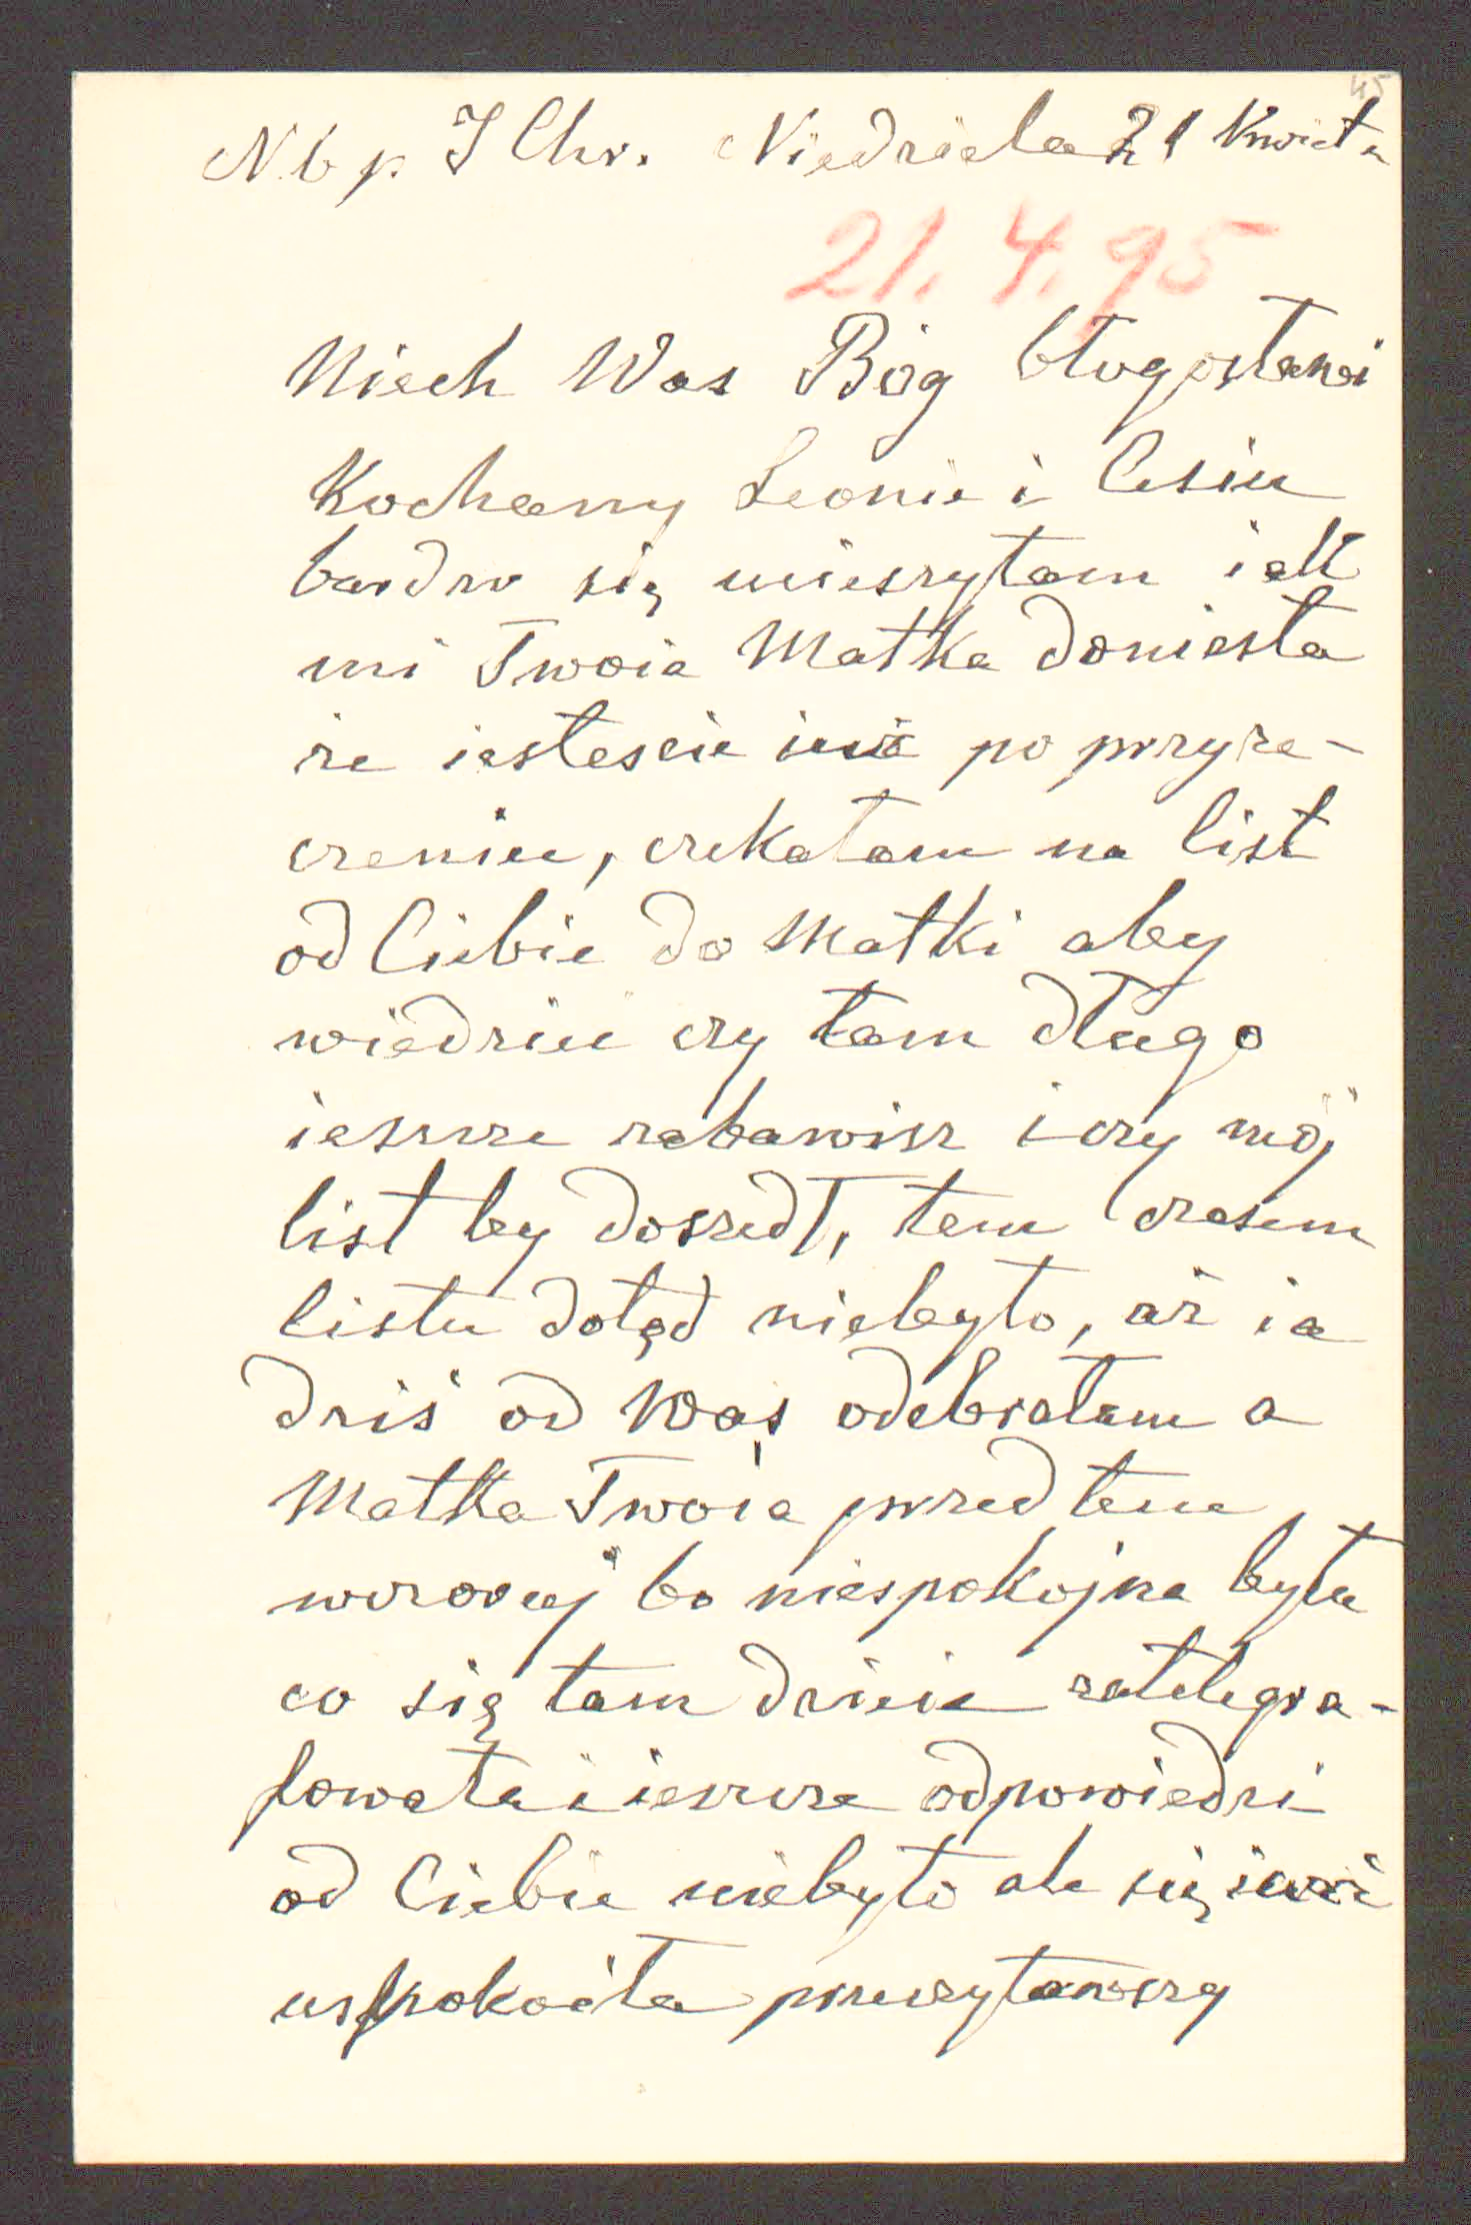 45
N. b p. J Chr. Niedziela 21 Kwiet.
21.4.95
Niech Was Bóg błogosławi
Kochany Leonie i Cesiu
bardzo się ucieszyłam iak
mi Twoia Matka doniosła
że iesteście iuż po przyrze-
czeniu, czekałam na list
od Ciebie do Matki aby
wiedzieć czy tam długo
ieszcze zabawisz i czy mój
list by doszedł, tem czasem
listu dotąd niebyło, aż ia
dziś od Was odebrałam a
Matka Twoia przed tem
wczoraj bo niespokojna była
co się tam dzieie zatelegra-
fowała i ieszcze odpowiedzi
od Ciebie niebyło ale się iuż
uspokoiła przeczytawszy